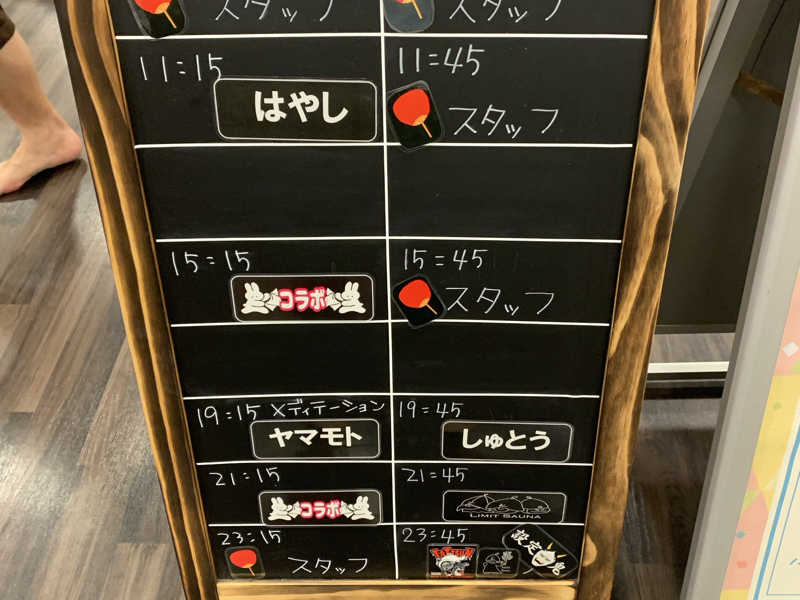 スタッフ スタッフ
11:15 11:45
はやし スタッフ
15:15 15:45
コラボ スタッフ
19:15 メディテーション 19:45
ヤマモト しゅとう
21:15 21:45
コラボ LIMIT SAUNA
23:15 23:45
スタッフ